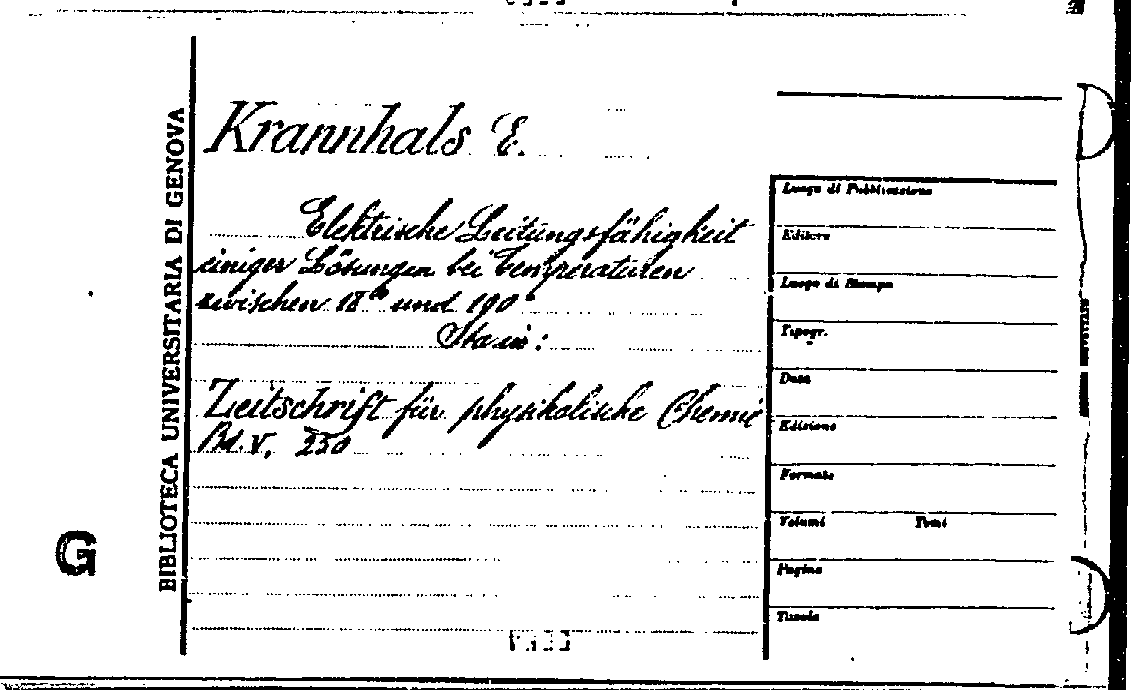 BIBLIOTECA UNIVERSITARIA DI GENOVA
G
Krannhals E.
Elektrische Leitungsfähigkeit
einiger Lösungen bei Temperaturen
zwischen 18° und 100°
Zeitschrift für physikalische Chemie
Bd. V, 250
Luogo di Pubblicazione
Editore
Luogo di Stampa
Tipogr.
Data
Edizione
Formato
Volumi Tomi
Pagine
Tavole